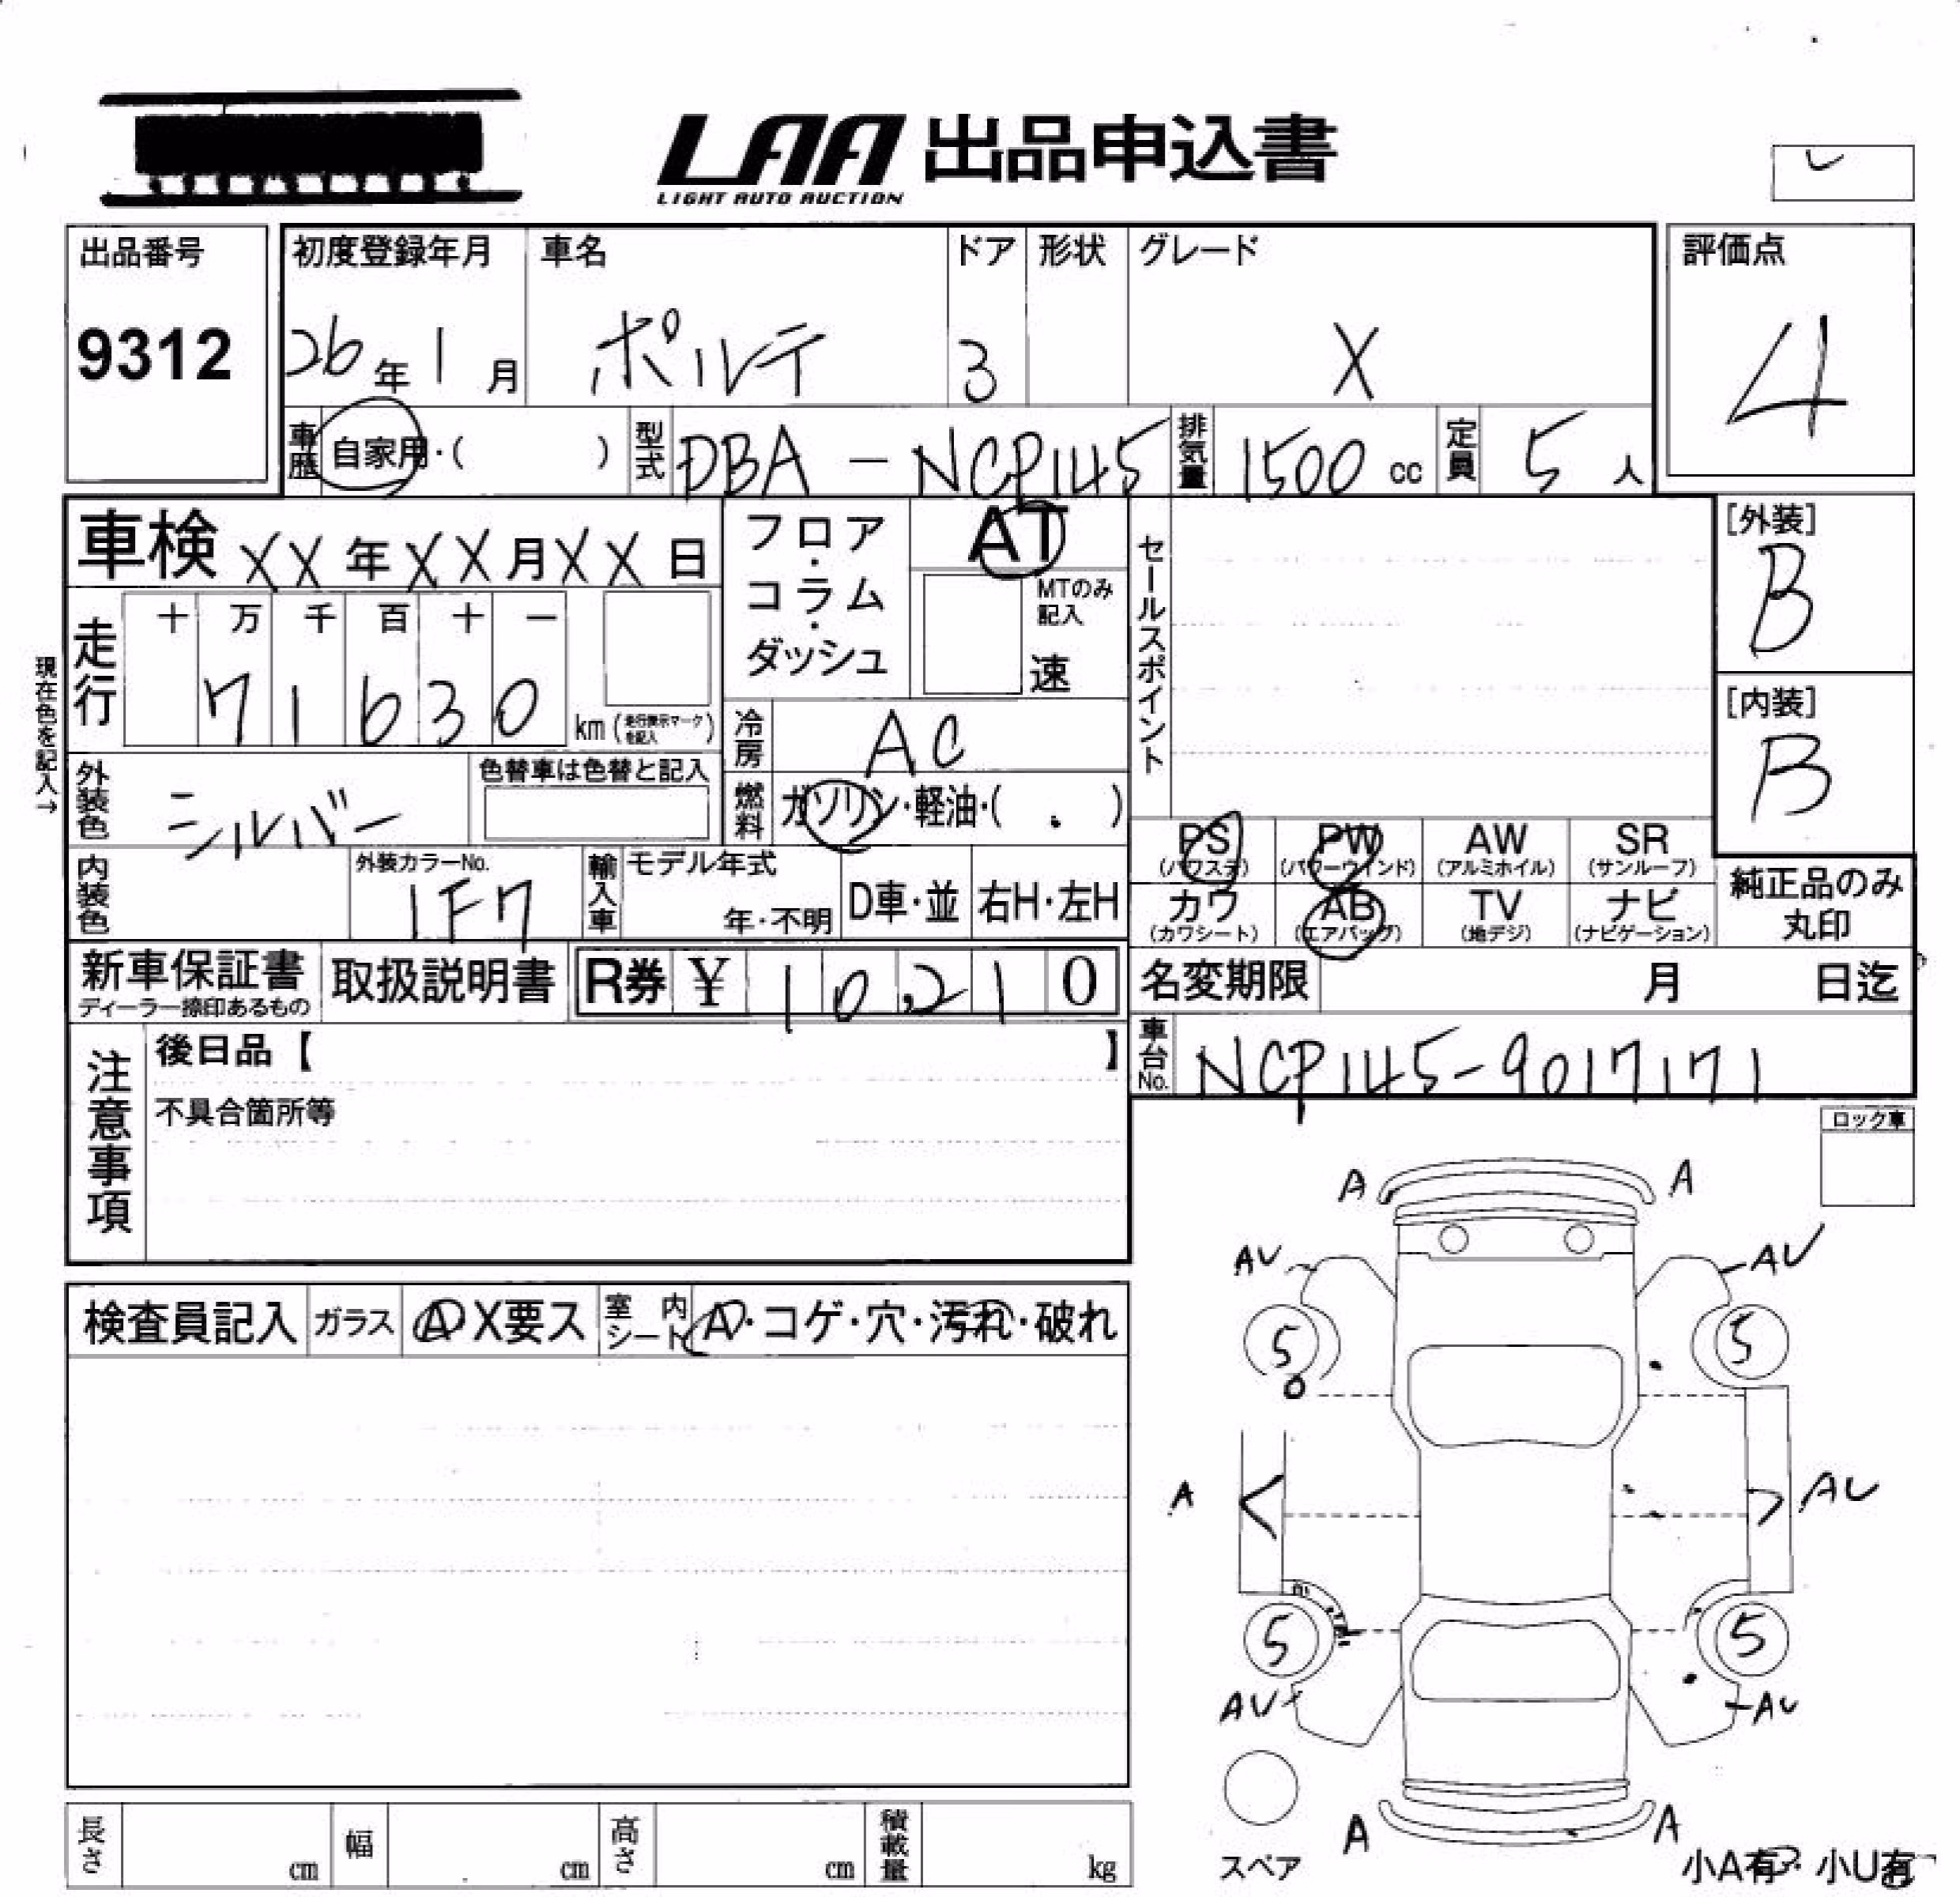 LAA 出品申込書
LIGHT AUTO AUCTION
出品番号
9312
初度登録年月
26年1月
車名
ポルテ
ドア
3
形状
グレード
X
評価点
4
車歴
自家用・( )
型式
DBA-NCP145
排気量
1500 cc
定員
5人
車検 XX年XX月XX日
フロア・コラム・ダッシュ
AT
MTのみ
記入
速
セールスポイント
[外装]
B
[内装]
B
現在色を記入→
走行
十 万 千 百 十 一
7 1 6 3 0
km (走行表示マークを記入)
冷房
AC
外装色
シルバー
色替車は色替と記入
燃料
ガソリン・軽油・( . )
内装色
外装カラーNo.
1F7
輸入車
モデル年式
年・不明
D車・並
右H・左H
PS
(パワステ)
PW
(パワーウインド)
AW
(アルミホイル)
SR
(サンルーフ)
カワ
(カワシート)
AB
(エアバッグ)
TV
(地デジ)
ナビ
(ナビゲーション)
純正品のみ
丸印
新車保証書
ディーラー捺印あるもの
取扱説明書
R券 ¥ 10,210
名変期限 月 日迄
車台No.
NCP145-9017171
注意事項
後日品【 】
不具合箇所等
ロック車
A A
AU AU
5 5
A AU
5 5
AU AU
A A
スペア
小A有・小U有
検査員記入
ガラス
A X要ス
室内シート
A・コゲ・穴・汚れ・破れ
長さ cm
幅 cm
高さ cm
積載量 kg